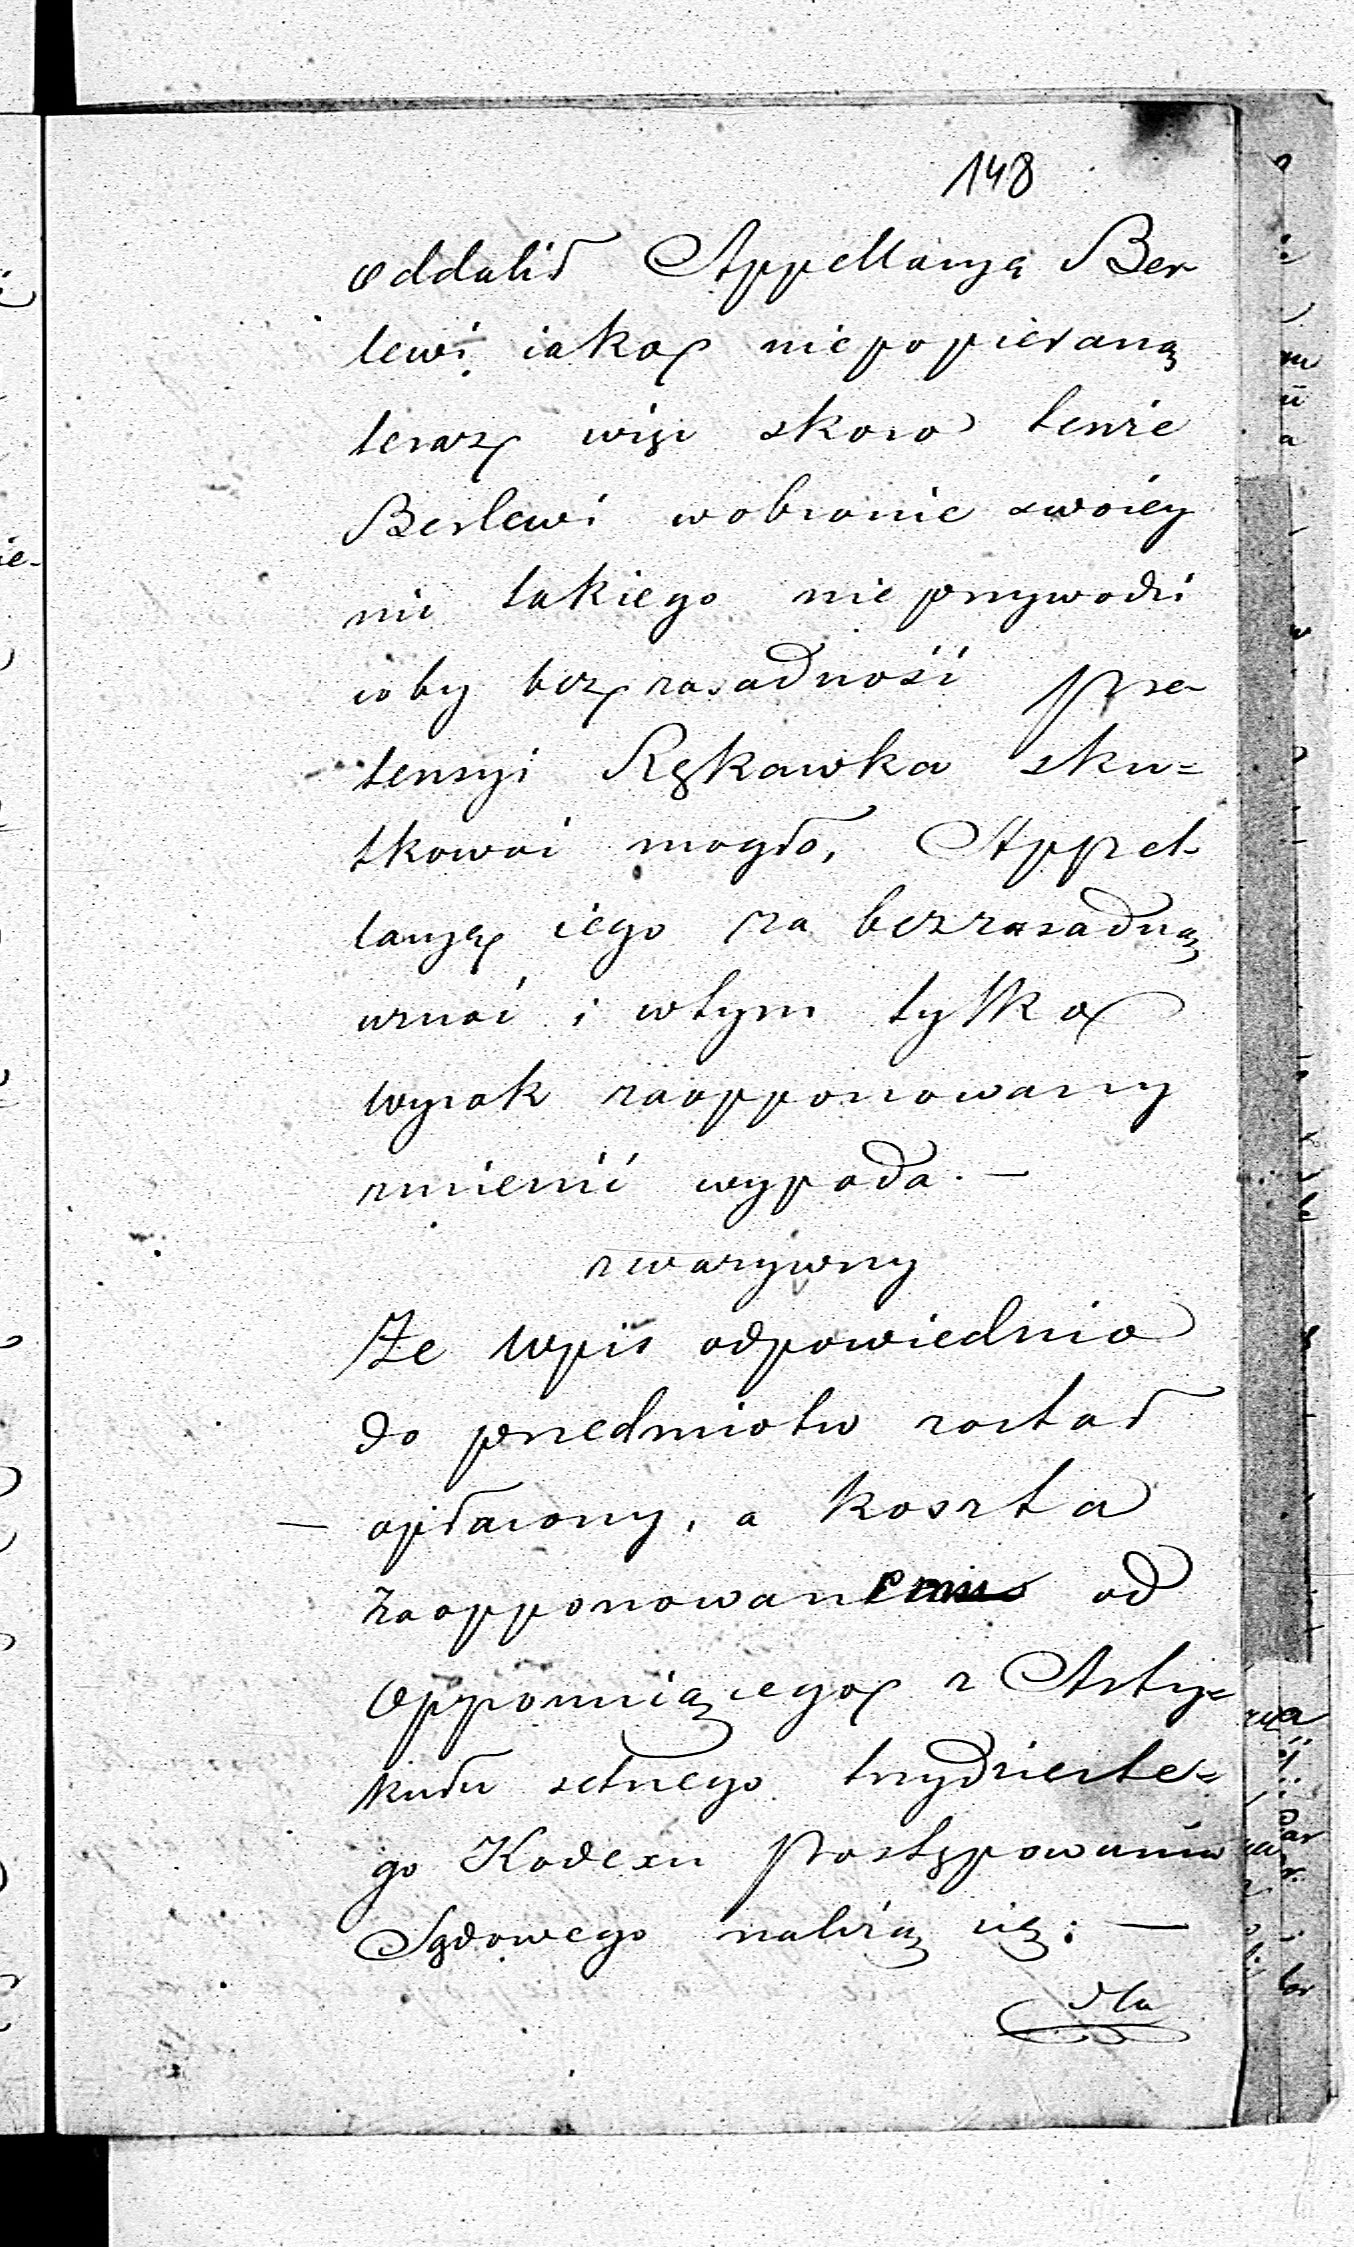 148
oddalił Appellacyą Ber
lewi iako niepopieraną
teraz więc skoro tenże
Berlewi wobronie swoiey
nic takiego nie przywodzi
coby bezzasadność pre-
tensyi Rękawka sku=
tkować mogło, Appel-
lacyę iego za bezzasadną
uznać i wtym tylko
wyrok zaopponowany
zmienić wypada. —
zważywszy
Że wpis odpowiednio
do przedmiotu został
— opłacony, a koszta
zaopponowanemu od
Opponuiącego z Arty=
kułu setnego trzydzieste=
go Kodexu Postępowania
Sądowego należą się: —
dla